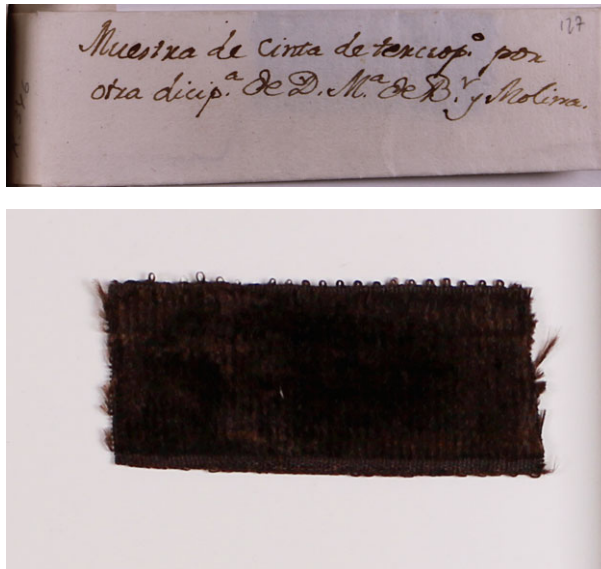 127
Muestra de Cinta de terciop.º por
otra dicip.ª de D. M.ª de B.r y Molina.